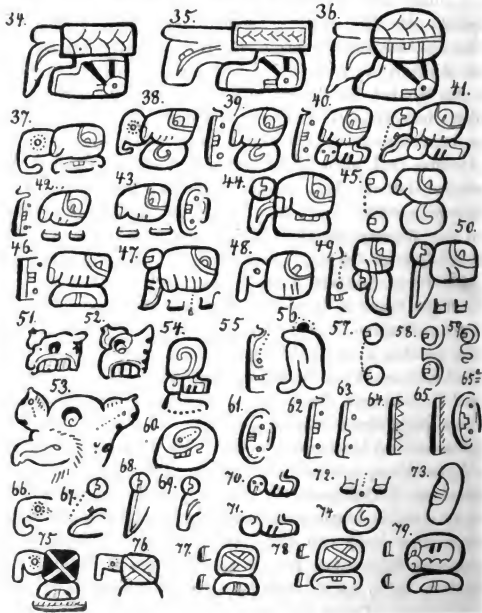 34. 35. 36.
37. 38. 39. 40. 41.
42. 43. 44. 45.
46. 47. 48. 49. 50.
51. 52. 54. 55. 56. 57. 58. 59.
53. 60. 61. 62. 63. 64. 65. 65a
66. 67. 68. 69. 70. 72. 73.
71. 74.
75 76. 77. 78 79.